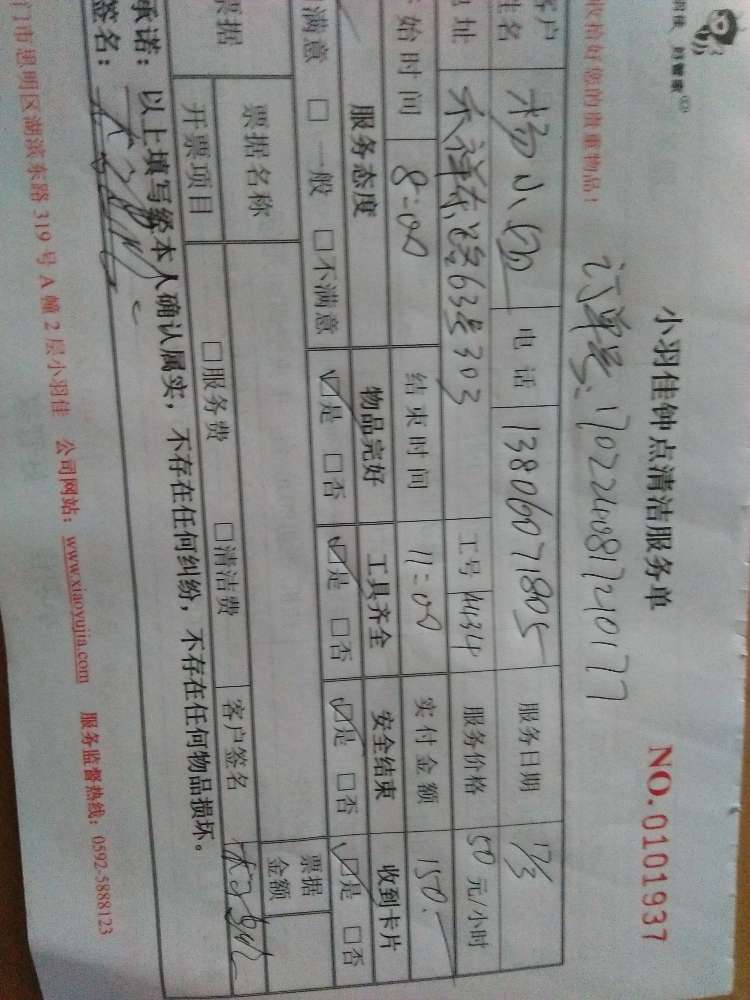 小羽佳钟点清洁服务单
NO.0101937
收拾好您的贵重物品!
订单号: 17022408171210177
客户姓名 杨小 电话 13806071805 服务日期 17/3
地址 禾祥东路63号303 工号 A434 服务价格 50元/小时
开始时间 8:00 结束时间 11:00 实付金额 150.-
服务态度 物品完好 工具齐全 安全结束 收到卡片
满意 □一般 □不满意 ☑是 □否 ☑是 □否 ☑是 □否 ☑是 □否
票据 票据名称 票据金额
开票项目 □服务费 □清洁费 客户签名
承诺:以上填写经本人确认属实,不存在任何纠纷,不存在任何物品损坏。
签名:
门市思明区湖滨东路319号A幢2层小羽佳 公司网站:www.xiaoyujia.com 服务监督热线:0592-5888123